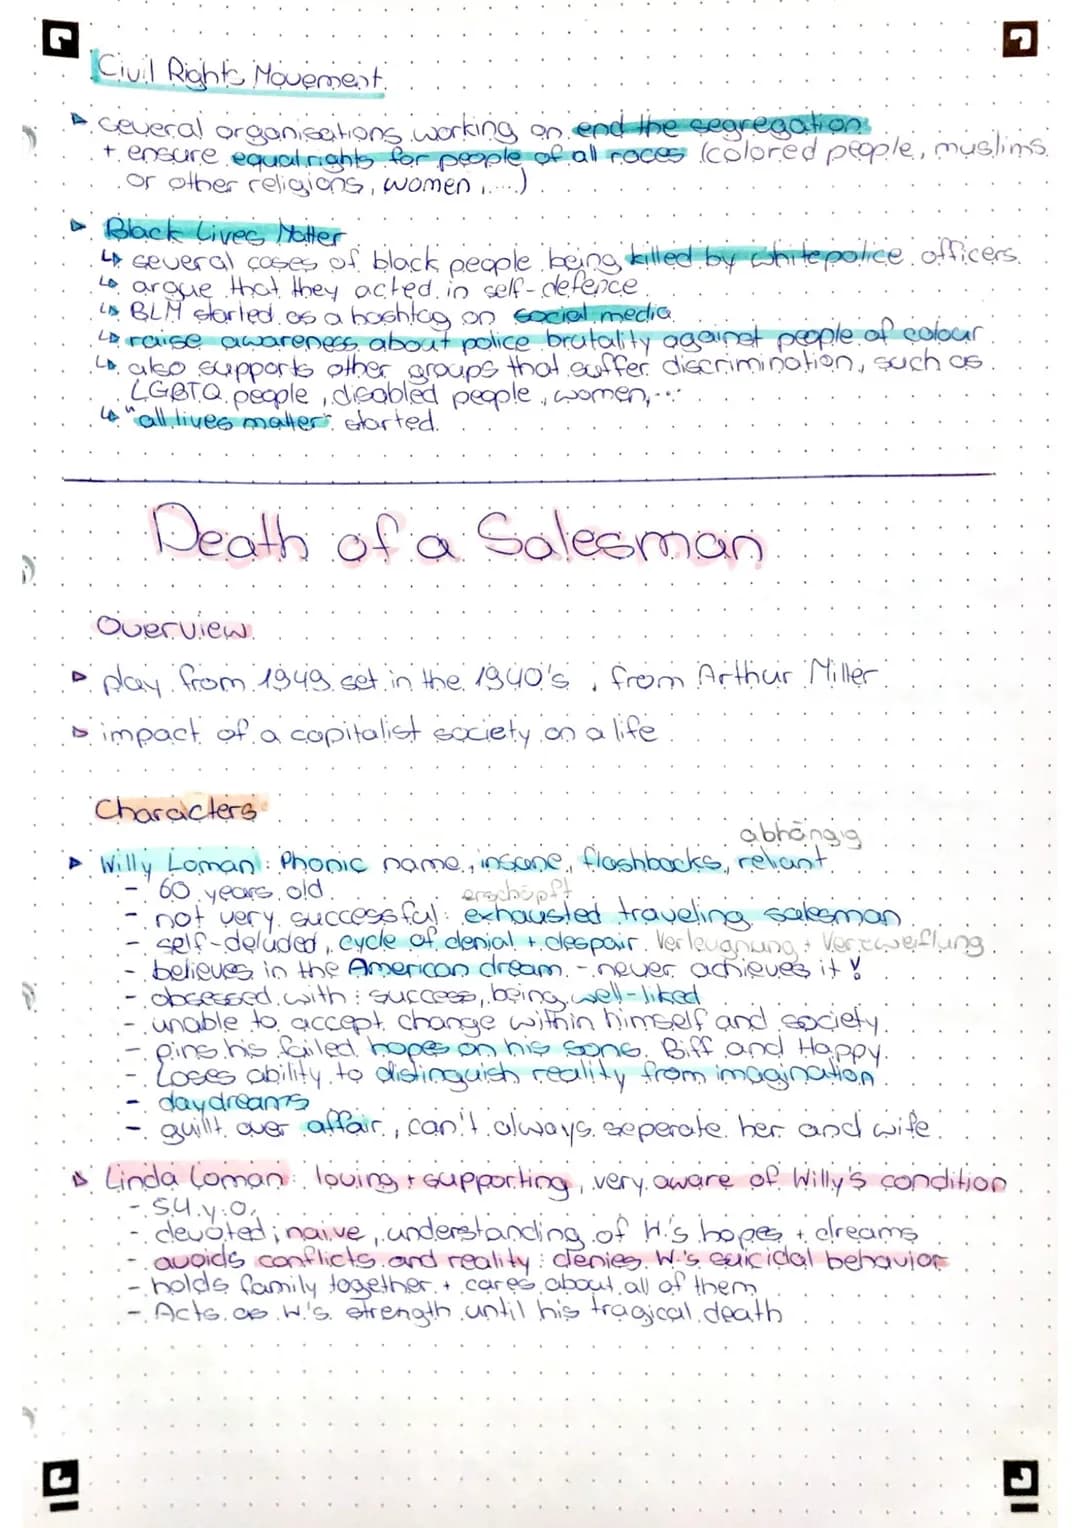 Civil Rights Movement
▷ several organisations working on end the segregation
+ ensure equal rights for people of all races (colored people, muslims
or other religions, women,....)
▷ Black Lives Matter
↳ several cases of black people being killed by white police officers
↳ argue that they acted in self-defence
↳ BLM started as a hashtag on social media
↳ raise awareness about police brutality against people of colour
↳ also supports other groups that suffer discrimination, such as
LGBTQ people, disabled people, women,...
↳ "all lives matter" started
Death of a Salesman
Overview
▷ play from 1949 set in the 1940's, from Arthur Miller
▷ impact of a capitalist society on a life
Characters
abhängig
▷ Willy Loman: Phonic name, insane, flashbacks, reliant
- 60 years old
erschöpft
- not very successful: exhausted traveling salesman
- self-deluded, cycle of denial + despair Verleugnung + Verzweiflung
- believes in the American dream - never achieves it!
- obsessed with: success, being well-liked
- unable to accept change within himself and society
- pins his failed hopes on his sons Biff and Happy
- Loses ability to distinguish reality from imagination
- daydreams
- guillt over affair, can't always seperate her and wife
▷ Linda Loman: loving + supporting, very aware of Willy's condition
- 54 y.o.
- devoted; naive, understanding of W.'s hopes + dreams
- avoids conflicts and reality: denies W.'s suicidal behavior
- holds family together + cares about all of them
- Acts as W.'s strength until his tragical death